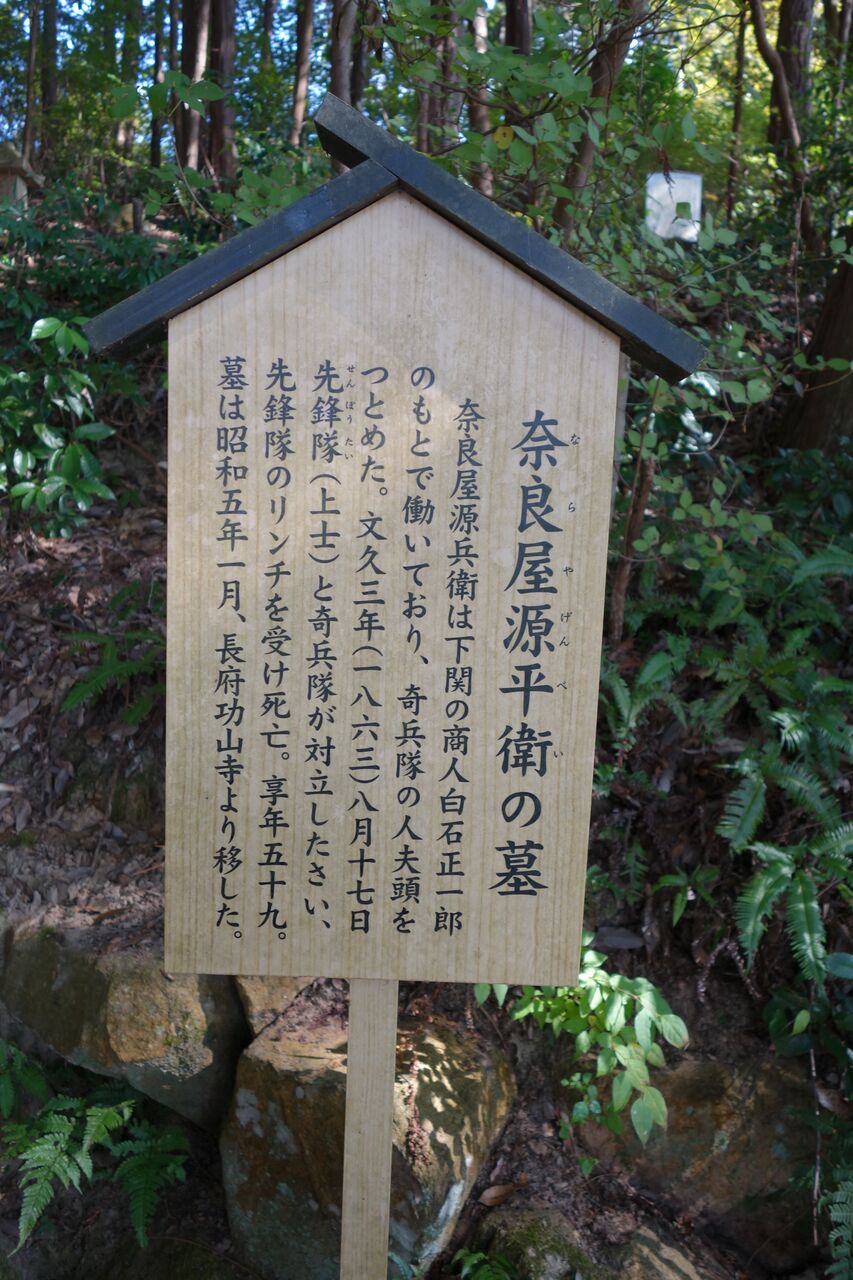 奈良屋源平衛の墓
奈良屋源兵衛は下関の商人白石正一郎
のもとで働いており、奇兵隊の人夫頭を
つとめた。文久三年(一八六三)八月十七日
先鋒隊(上士)と奇兵隊が対立したさい、
先鋒隊のリンチを受け死亡。享年五十九。
墓は昭和五年一月、長府功山寺より移した。